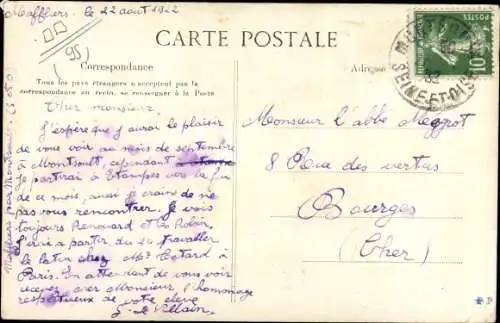 Maffliers. le 22 aout 1922
(95)
CARTE POSTALE
Correspondance
Adresse
Tous les pays étrangers n'acceptent pas la
correspondance au recto, se renseigner à la Poste
Cher monsieur
J'espère que j'aurai le plaisir
de vous voir au mois de septembre
à Montsoult, cependant
je partirai à Etampes vers la fin
de ce mois, aussi je crains de ne
pas vous rencontrer. Je vois
toujours Renouard et Robin.
J'irai a partir du 20 travailler
le latin chez Mr Tetard à
Paris. En attendant de vous voir
recevez cher Monsieur l'hommage
respectueux de votre élève
Maffliers par
Monsieur l'abbé Meggrot
8 Rue des vertus
Bourges
(Cher)
10
SEINE-ET-OISE